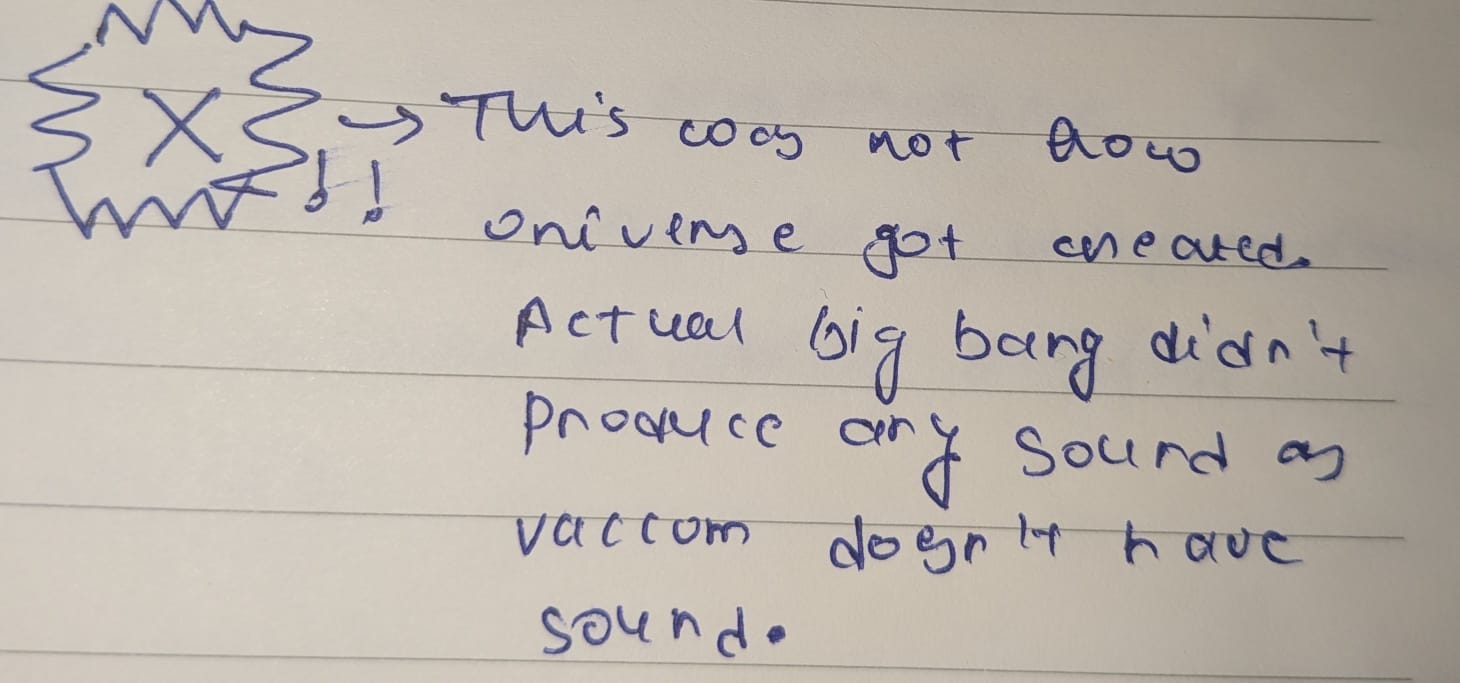 X !! → This was not how
universe got created.
Actual big bang didn't
produce any sound as
vaccom doesn't have
sound.